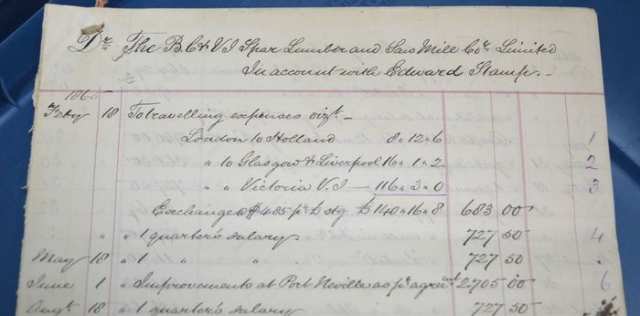 Dr. The B.C & V.I Spar Lumber and Saw Mill Co. Limited
In account with Edward Stamp.
186
Feby 18 To travelling expenses vizt.
London to Holland 8 " 12 " 6 1
" to Glasgow & Liverpool 16 " 1 " 2 2
" " Victoria V.I 116 " 3 " 0 3
Exchange @ $4.85 pr £ stg £140 " 16 " 8 683 00
" " 1 quarter's salary 727 50 4
May 18 " 1 " " 727 50
June 1 " Improvements at Port Neville as pr agreemt 2705 00 6
Augt 18 " 1 quarter's salary 727 50